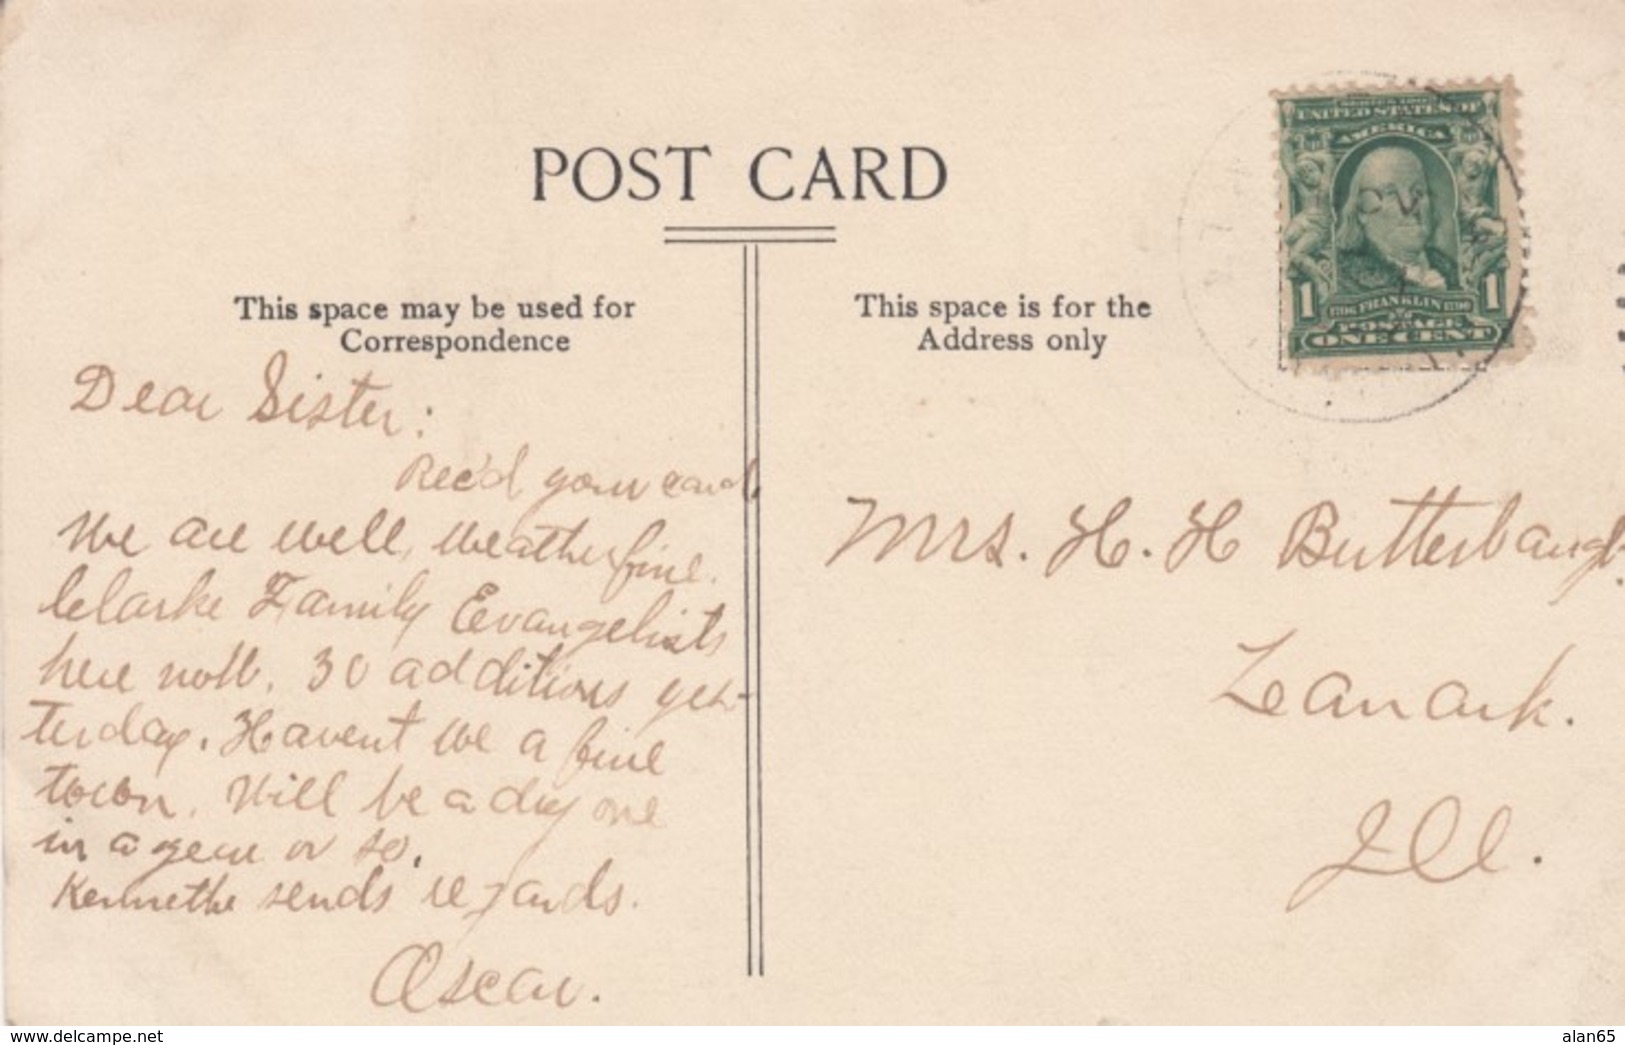 POST CARD
This space may be used for
Correspondence
This space is for the
Address only
SERIES 1902
UNITED STATES OF
AMERICA
1 1
1706 FRANKLIN 1790
POSTAGE
ONE CENT
Dear Sister:
Rec'd your card.
We are well, weather fine.
Clarke Family Evangelists
here now. 30 additions yes-
terday. Havent we a fine
town. Will be a dry one
in a year or so.
Kennethe sends regards.
Oscar.
Mrs. H. H Butterbaugh.
Lanark.
Ill.
www.delcampe.net
alan65